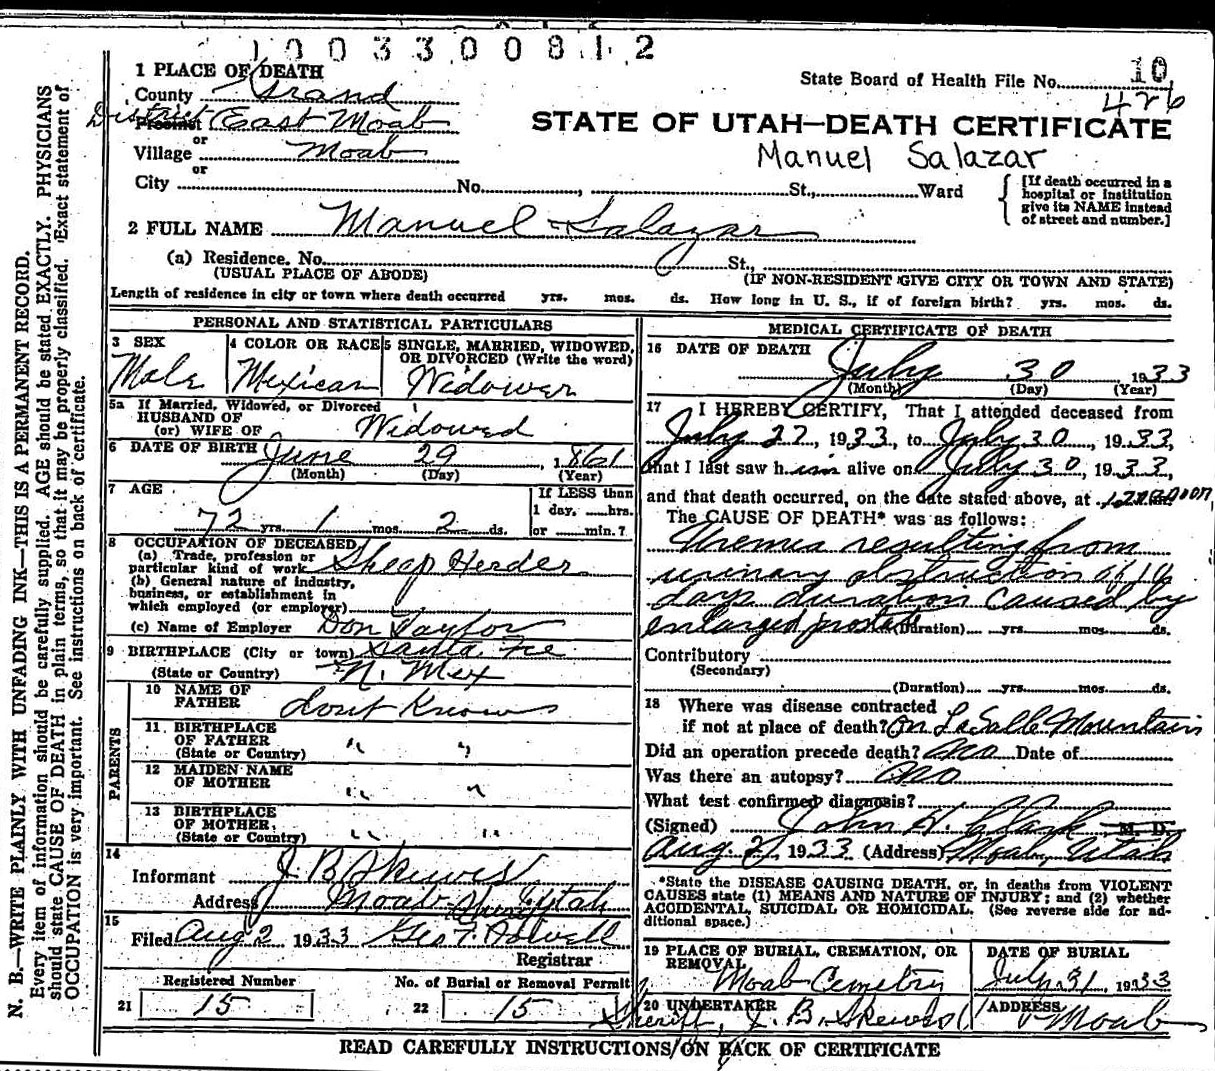 1003300812
1 PLACE OF DEATH
State Board of Health File No. 10
426
County Grand
District Precinct East Moab
or
Village Moab
or
City No. , St., Ward
STATE OF UTAH—DEATH CERTIFICATE
Manuel Salazar
[If death occurred in a
hospital or institution
give its NAME instead
of street and number.]
2 FULL NAME Manuel Salazar
(a) Residence. No. St.,
(USUAL PLACE OF ABODE) (IF NON-RESIDENT GIVE CITY OR TOWN AND STATE)
Length of residence in city or town where death occurred yrs. mos. ds. How long in U. S., if of foreign birth? yrs. mos. ds.
PERSONAL AND STATISTICAL PARTICULARS
3 SEX
Male
4 COLOR OR RACE
Mexican
5 SINGLE, MARRIED, WIDOWED,
OR DIVORCED (Write the word)
Widower
5a If Married, Widowed, or Divorced
HUSBAND OF
(or) WIFE OF Widowed
6 DATE OF BIRTH June 29, 1861
(Month) (Day) (Year)
7 AGE
72 yrs. 1 mos. 2 ds.
If LESS than
1 day, hrs.
or min.?
8 OCCUPATION OF DECEASED
(a) Trade, profession or
particular kind of work Sheep Herder
(b) General nature of industry,
business, or establishment in
which employed (or employer)
(c) Name of Employer Don Taylor
9 BIRTHPLACE (City or town) Santa Fe
(State or Country) N. Mex
PARENTS
10 NAME OF
FATHER dont Know
11 BIRTHPLACE
OF FATHER " "
(State or Country)
12 MAIDEN NAME
OF MOTHER " "
13 BIRTHPLACE
OF MOTHER " "
(State or Country)
14
Informant J. B. Skewes
Address Moab Utah
15
Filed Aug 2 1933 Geo F. Powell
Registrar
Registered Number
21 15
No. of Burial or Removal Permit
22 15
MEDICAL CERTIFICATE OF DEATH
16 DATE OF DEATH July 30 1933
(Month) (Day) (Year)
17 I HEREBY CERTIFY, That I attended deceased from
July 27, 1933, to July 30, 1933,
that I last saw him alive on July 30, 1933,
and that death occurred, on the date stated above, at 12 noon
The CAUSE OF DEATH* was as follows:
Uremia resulting from
urinary obstruction of 14
days duration caused by
enlarged prostate (Duration) yrs. mos. ds.
Contributory
(Secondary)
(Duration) yrs. mos. ds.
18 Where was disease contracted
if not at place of death? On LaSalle Mountain
Did an operation precede death? no Date of
Was there an autopsy? no
What test confirmed diagnosis?
(Signed) John H. Clark, M. D.
Aug 2, 1933 (Address) Moab, Utah
*State the DISEASE CAUSING DEATH, or, in deaths from VIOLENT
CAUSES state (1) MEANS AND NATURE OF INJURY; and (2) whether
ACCIDENTAL, SUICIDAL OR HOMICIDAL. (See reverse side for ad-
ditional space.)
19 PLACE OF BURIAL, CREMATION, OR
REMOVAL
Moab Cemetry
DATE OF BURIAL
July 31, 1933
20 UNDERTAKER
Sheriff, J. B. Skewes
ADDRESS
Moab
READ CAREFULLY INSTRUCTIONS ON BACK OF CERTIFICATE
N. B.—WRITE PLAINLY WITH UNFADING INK—THIS IS A PERMANENT RECORD.
Every item of information should be carefully supplied. AGE should be stated EXACTLY. PHYSICIANS
should state CAUSE OF DEATH in plain terms, so that it may be properly classified. Exact statement of
OCCUPATION is very important. See instructions on back of certificate.